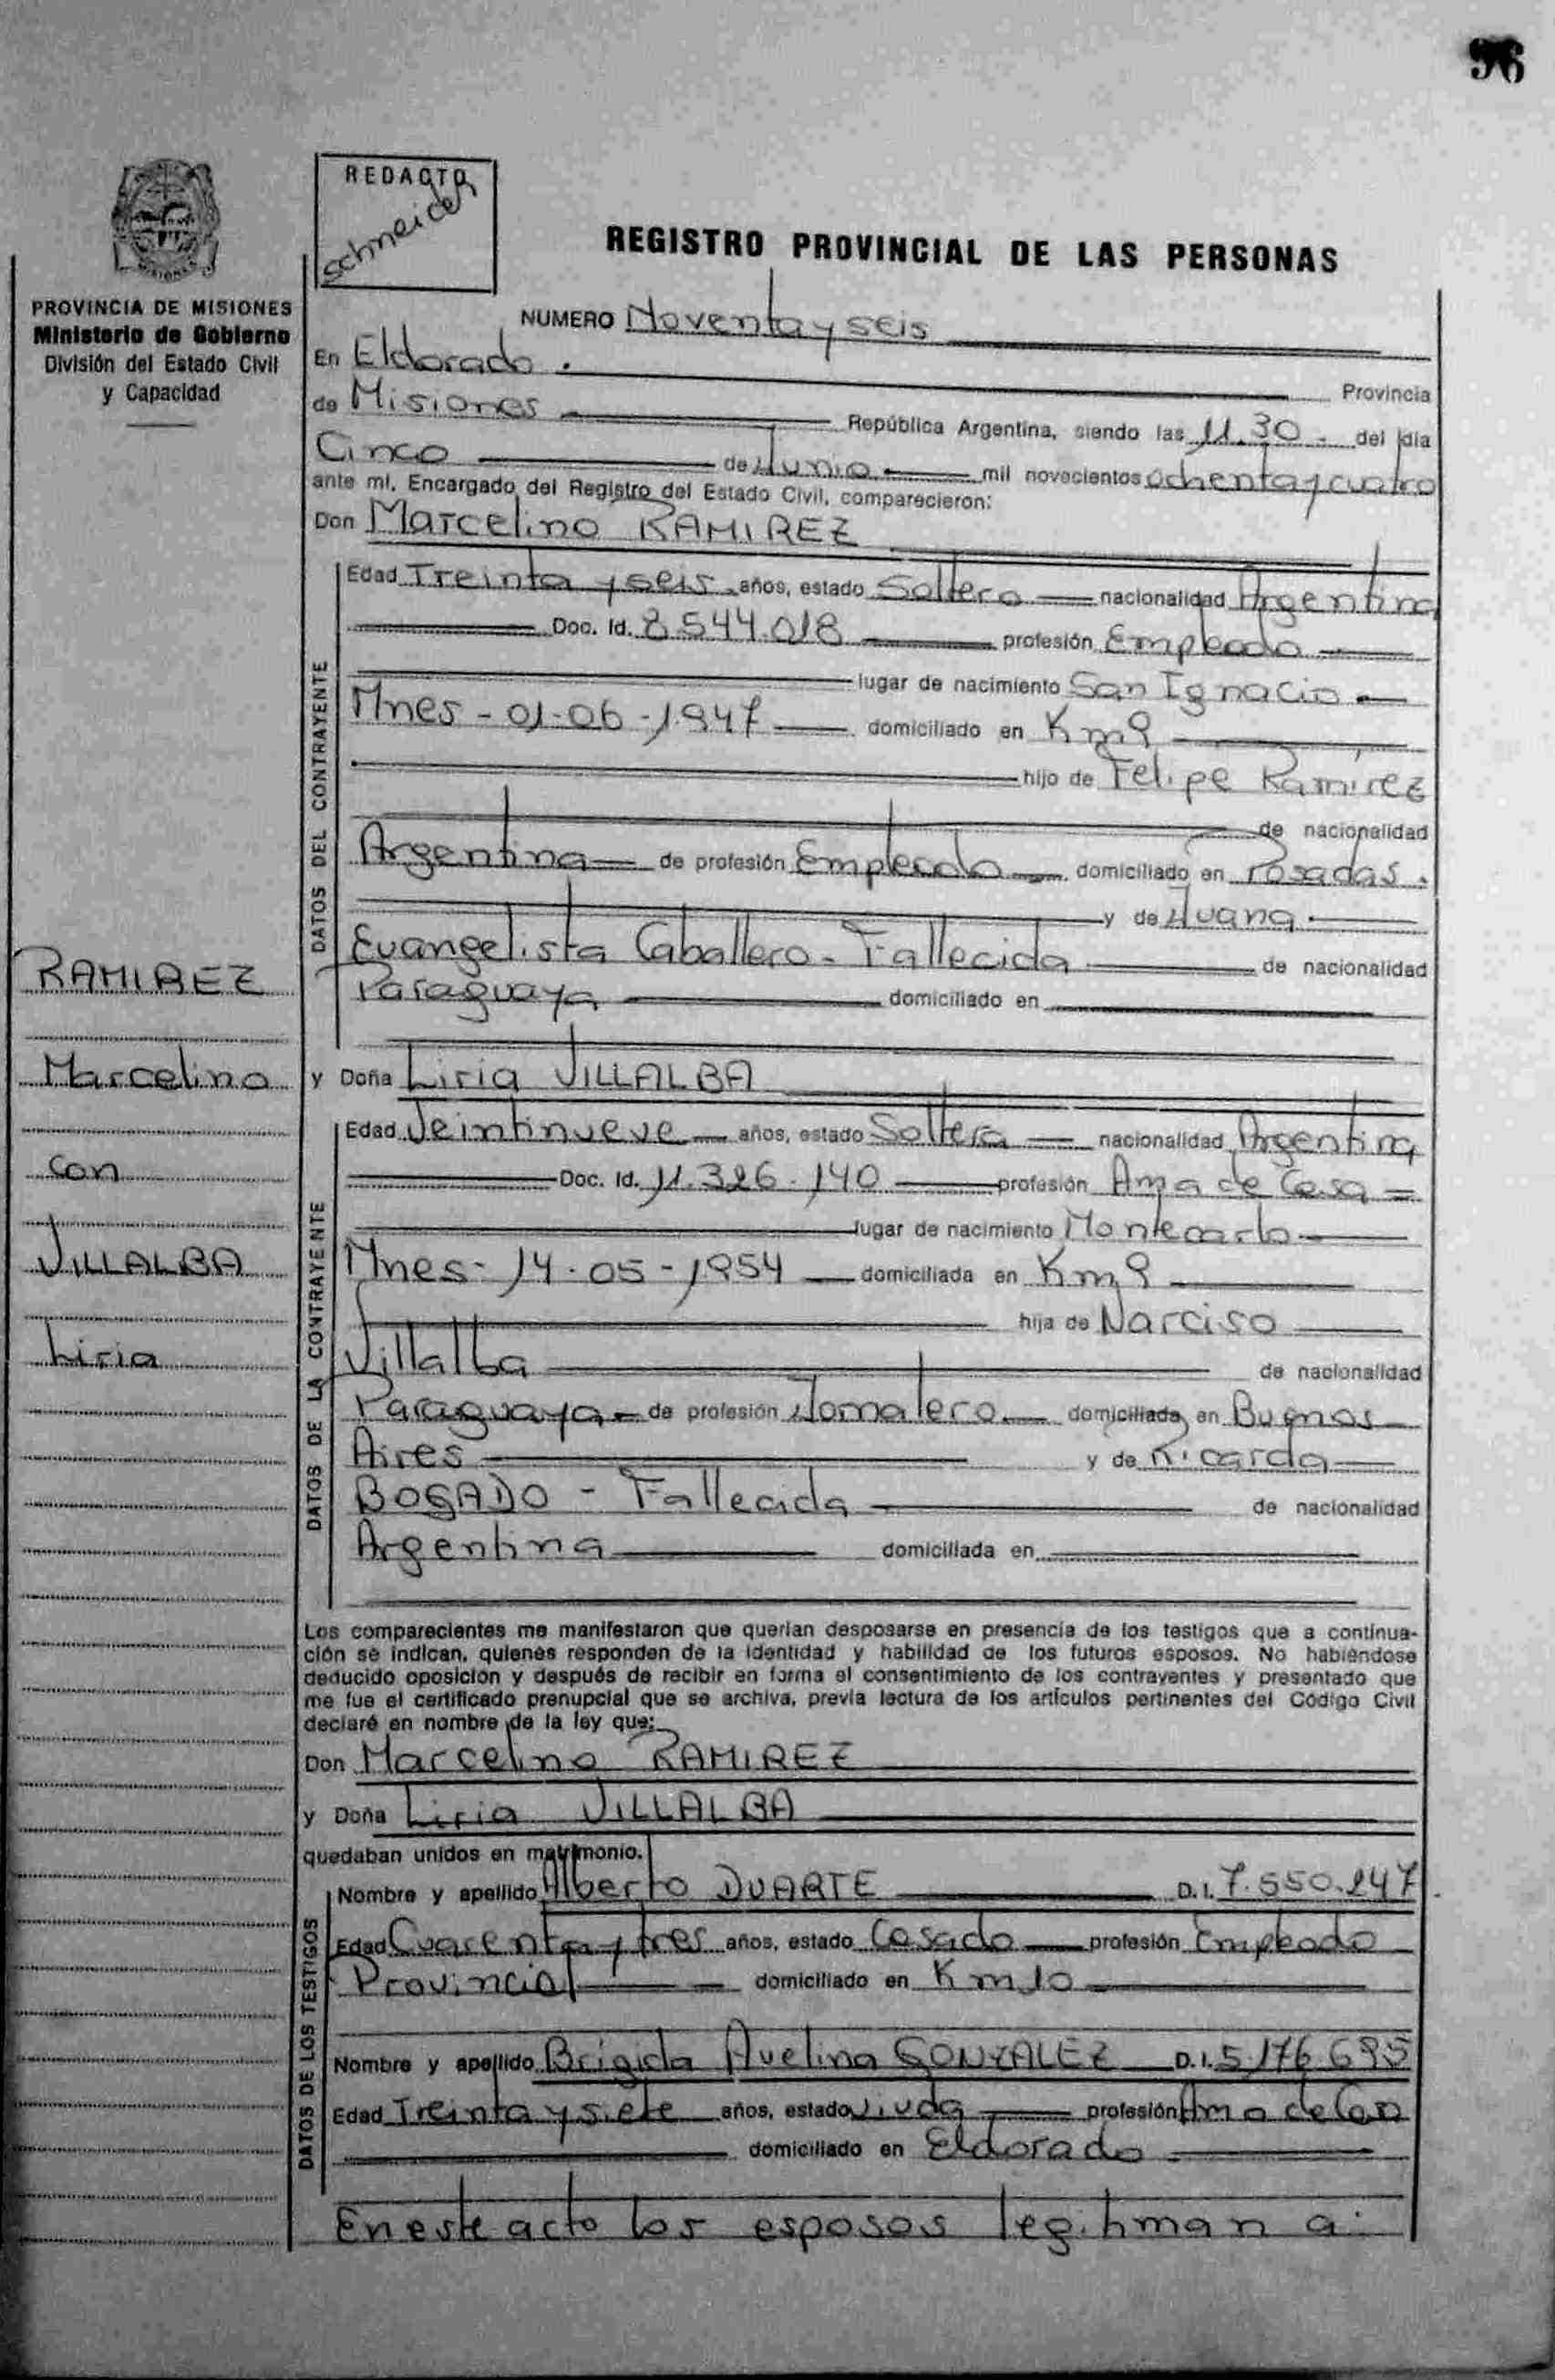 96
REDACTO
Schneider
REGISTRO PROVINCIAL DE LAS PERSONAS
PROVINCIA DE MISIONES
Ministerio de Gobierno
División del Estado Civil
y Capacidad
NUMERO Noventa y seis
En Eldorado. Provincia
de Misiones República Argentina, siendo las 11.30. del día
Cinco de Junio mil novecientos ochenta y cuatro
ante mí, Encargado del Registro del Estado Civil, comparecieron:
Don Marcelino RAMIREZ
DATOS DEL CONTRAYENTE
Edad Treinta y seis años, estado Soltero nacionalidad Argentina
Doc. Id. 8.544.018 profesión Empleado
lugar de nacimiento San Ignacio
Mnes - 01-06-1947 domiciliado en Km 9
hijo de Felipe Ramirez
de nacionalidad
Argentina de profesión Empleado domiciliado en Posadas.
y de Juana
Evangelista Caballero - Fallecida de nacionalidad
Paraguaya domiciliado en
RAMIREZ
Marcelino
con
VILLALBA
Liria
y Doña Liria VILLALBA
DATOS DE LA CONTRAYENTE
Edad Veintinueve años, estado Soltera nacionalidad Argentina
Doc. Id. 11.326.140 profesión Ama de Casa
lugar de nacimiento Montecarlo
Mnes - 14-05-1954 domiciliada en Km 9
hija de Narciso
Villalba de nacionalidad
Paraguaya de profesión Jornalero domiciliado en Buenos
Aires y de Ricarda
BOGADO - Fallecida de nacionalidad
Argentina domiciliada en
Los comparecientes me manifestaron que querían desposarse en presencia de los testigos que a continua-
ción se indican, quienes responden de la identidad y habilidad de los futuros esposos. No habiéndose
deducido oposición y después de recibir en forma el consentimiento de los contrayentes y presentado que
me fue el certificado prenupcial que se archiva, previa lectura de los artículos pertinentes del Código Civil
declaré en nombre de la ley que:
Don Marcelino RAMIREZ
y Doña Liria VILLALBA
quedaban unidos en matrimonio.
DATOS DE LOS TESTIGOS
Nombre y apellido Alberto DUARTE D.I. 7.550.247
Edad Cuarenta y tres años, estado Casado profesión Empleado
Provincial domiciliado en Km 10
Nombre y apellido Brígida Avelina GONZALEZ D.I. 5.176.695
Edad Treinta y siete años, estado Viuda profesión Ama de Casa
domiciliado en Eldorado
En este acto los esposos legitiman a: